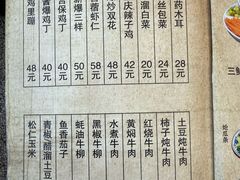 鸡里蹦
48元
酱爆鸡丁
40元
宫保鸡丁
40元
新爆三样
50元
蕾虾仁
58元
炒双花
48元
庆辣子鸡
42元
溜白菜
20元
丝包菜
24元
药木耳
28元
三鲜
松仁玉米
青椒/醋溜土豆
鱼香茄子
蚝油牛柳
黑椒牛柳
水煮牛肉
黄焖牛肉
红烧牛肉
柿子炖牛肉
土豆炖牛肉
蛤瓜条